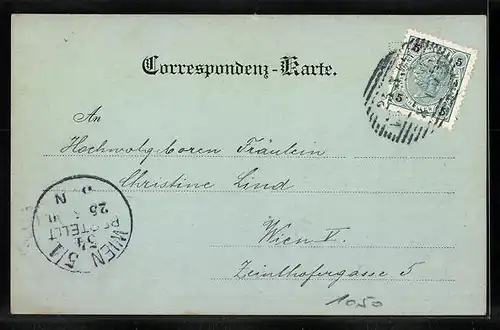 Correspondenz-Karte.
An
Hochwolgeboren Fräulein
Christine Lind
Wien V.
Zeinlhofergasse 5
1050
5 5
5 5
WIEN 5/1
54
BESTELLT
25
N